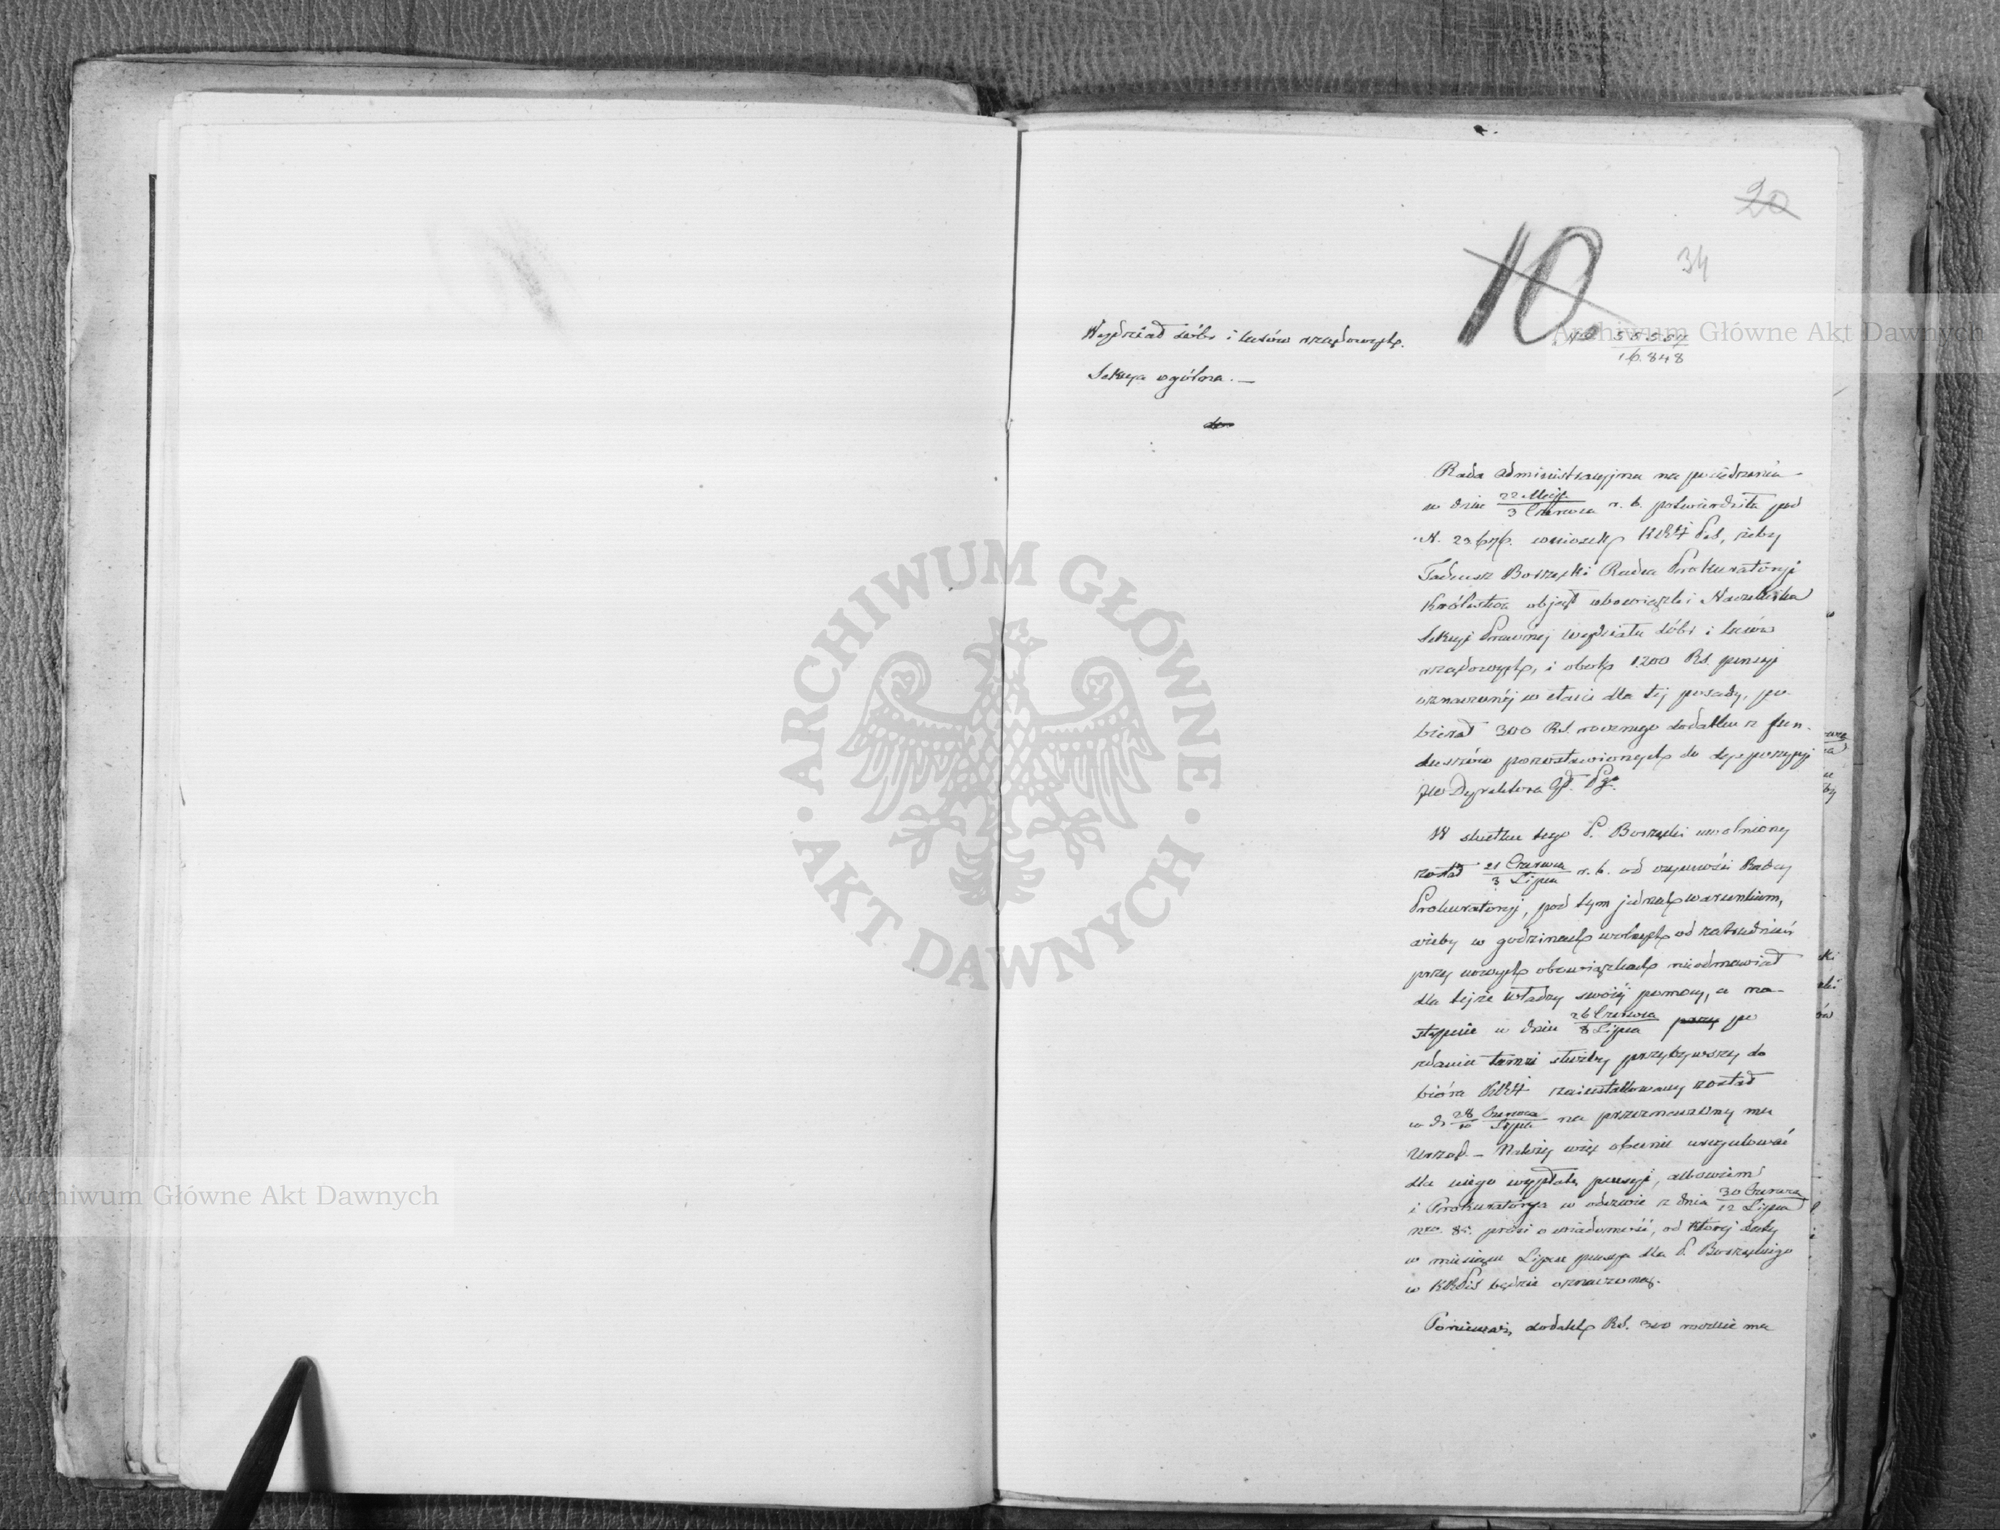 20
10.
34
No 58557
16.848
Wydział dóbr i lasów rządowych.
Sekcya ogólna. —
Rada administracyjna na posiedzeniu
w dniu 22 Maja / 3 Czerwca r. b. potwierdziła pod
N. wniosek, żeby
Tadeusz Borzęcki Radca Prokuratoryi
Królestwa objął obowiązki Naczelnika
Sekcyi Prawnej wydziału dóbr i lasów
rządowych, i obok 1200 Rs. pensyi
oznaczonéj w etacie dla téj posady, po-
bierał 300 Rs. rocznego dodatku z fun-
duszów pozostawionych do dyspozycyi
Dyrektora
W skutku tego P. Borzęcki uwolniony
został 21 Czerwca / 3 Lipca r. b. od czynności Radcy
Prokuratoryi, pod tym jednak warunkiem,
ażeby w godzinach wolnych od zatrudnień
przy nowych obowiązkach nieodmawiał
dla tejże władzy swojéj pomocy, a na-
stępnie w dniu 26 Czerwca / 8 Lipca przy po
zdaniu tamże służby przybywszy do
bióra zainstallowany został
w d. 28 Czerwca / 10 Lipca na przeznaczony mu
Urząd. — Należy więc obecnie uregulować
dla niego wypłatę pensyi, albowiem
i Prokuratorya w odezwie z dnia 30 Czerwca / 12 Lipca
nro. prosi o wiadomość, od któréj daty
w miesiącu Lipcu pensya dla P. Borzęckiego
w będzie oznaczoną.
Ponieważ, dodatek Rs. 300 rocznie ma
ARCHIWUM GŁÓWNE
AKT DAWNYCH
Archiwum Główne Akt Dawnych
Archiwum Główne Akt Dawnych